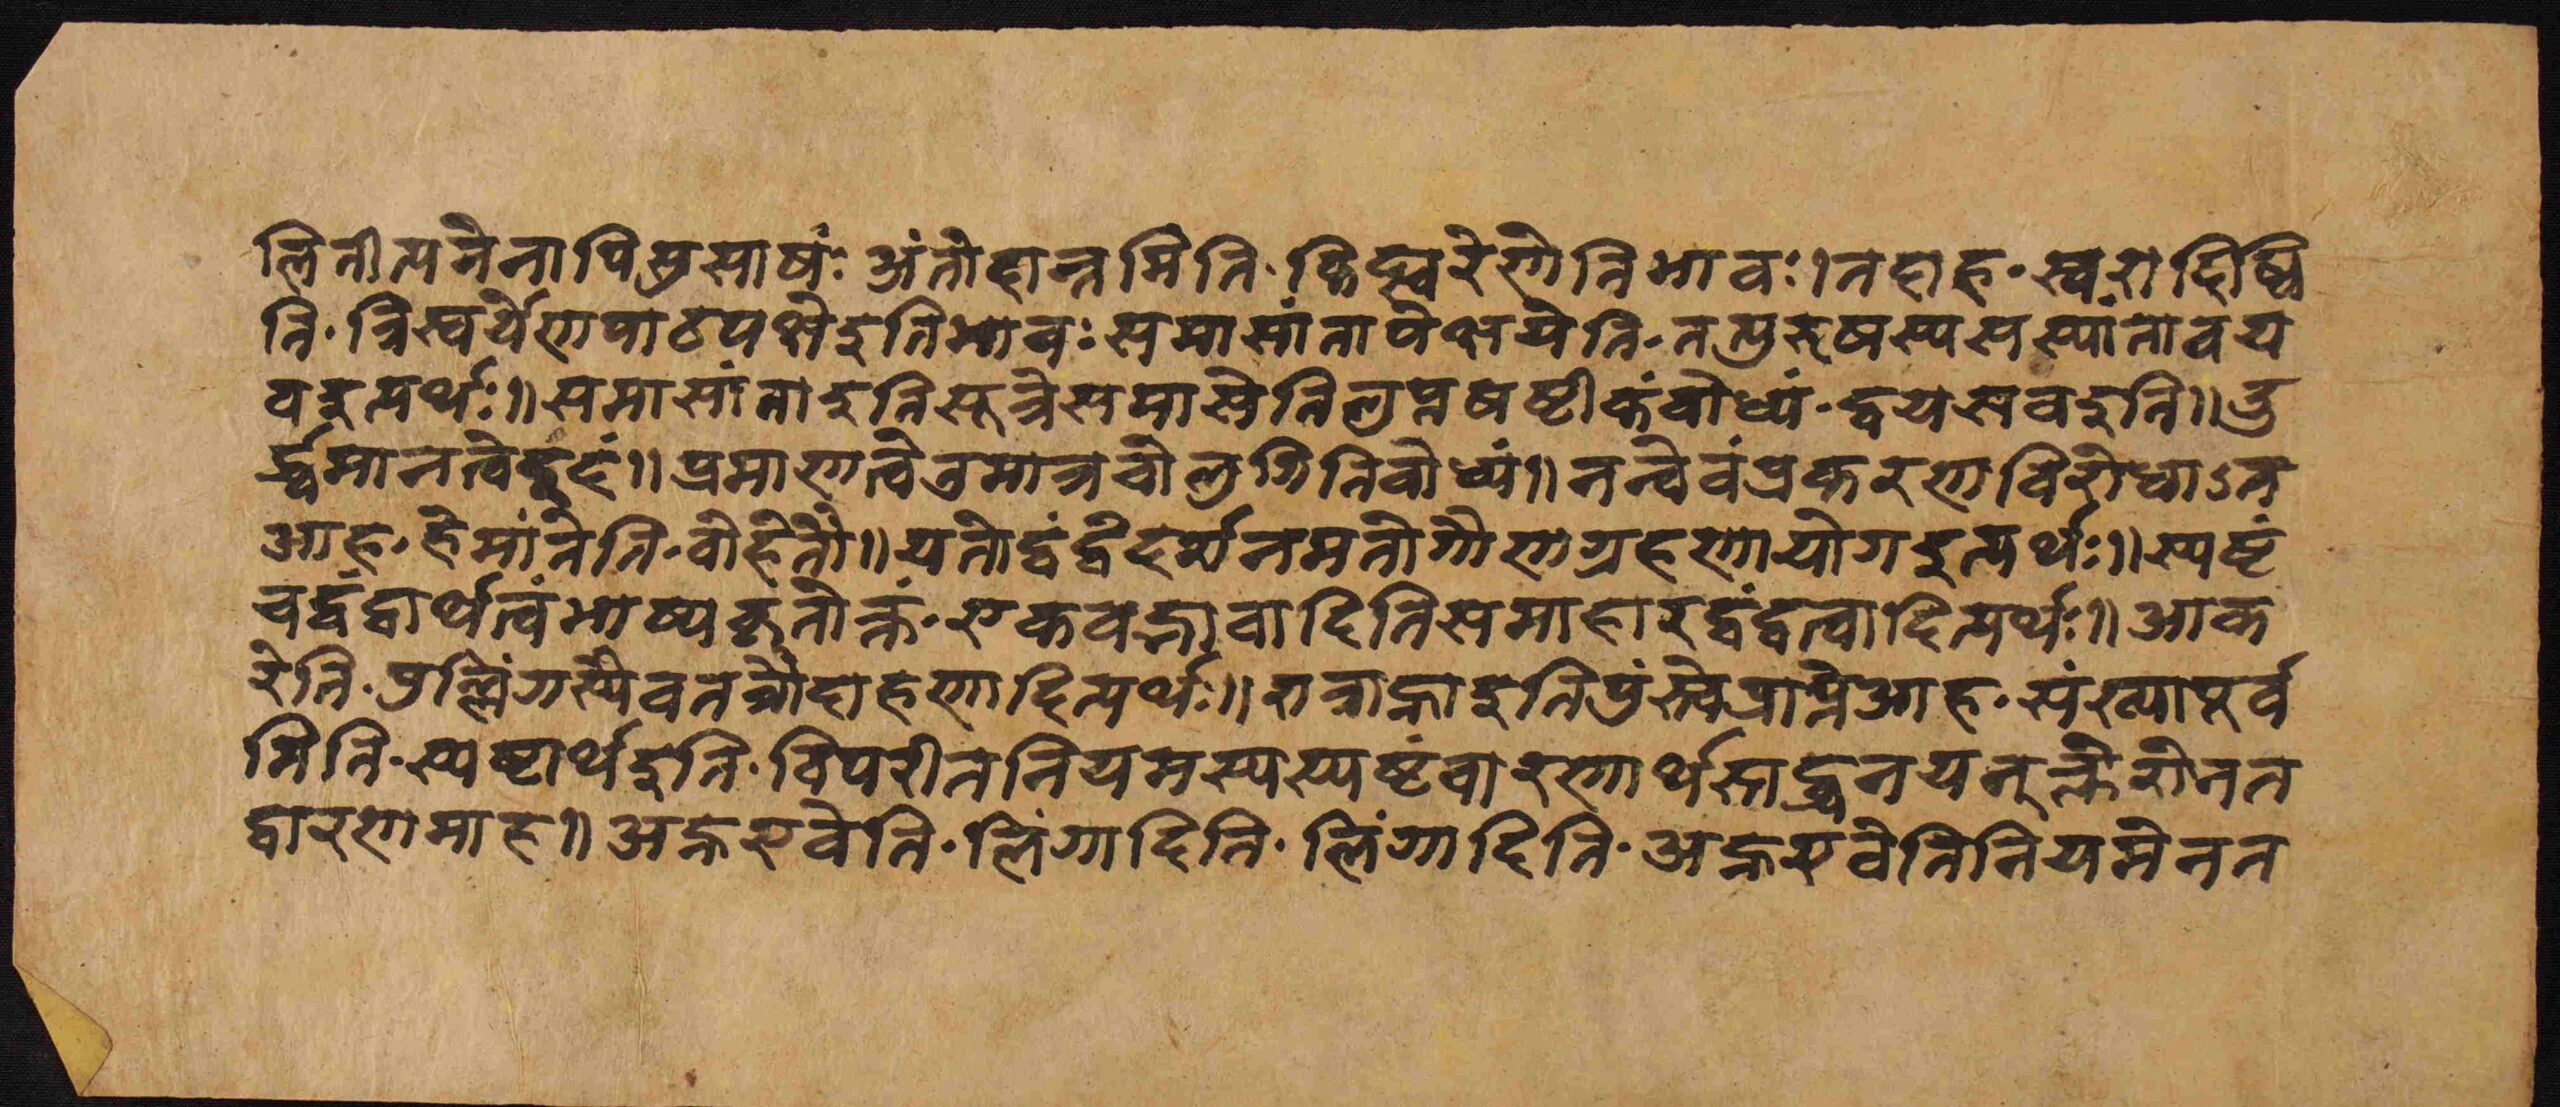 लितीत्यनेनापिप्रसाषंः अंतोदात्तमिति· फिट्स्वरेणेतिभावः।तदाह·स्वरादिष्वि
ति·त्रिस्वर्थेणपाठपक्षेइतिभावः समासांतापेक्षयेति·तत्पुरुषस्यसस्यांतावय
वइत्यर्थः॥समासांताइतिसूत्रेसमासेतिलुप्तषष्टीकंबोध्यं·द्वयसवइति॥उ
र्द्ध्वमानत्वेइदं॥प्रमाणत्वेतुमात्रचोलुगितिबोध्यं॥नन्वेवंप्रकरणविरोधाऽत
आह·हेमांतेति·वोहेतौ॥यतोद्वंद्वेदर्सनमतोगौणग्रहणायोगइत्यर्थः॥स्पष्टं
चद्वंद्वार्थत्वंभाष्यकृतोक्तं·एकवद्भावादितिसमाहारद्वंद्वत्वादित्यर्थः॥आक
रेति·पुल्लिंगस्यैवतत्रोदाहरणादित्यर्थः॥रात्राह्नाइतिपुंस्त्वेप्राप्तेआह·संख्यापूर्व
मिति·स्पष्टार्थइति·विपरीतनियमस्यस्पष्टंवारणार्थ
द्वारणमाह॥अह्नएवेति·लिंगादिति·लिंगादिति·अह्नएवेतिनियमेनत